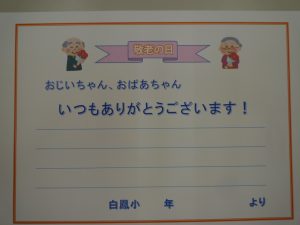 敬老の日
おじいちゃん、おばあちゃん
いつもありがとうございます！
白鳳小 年 より